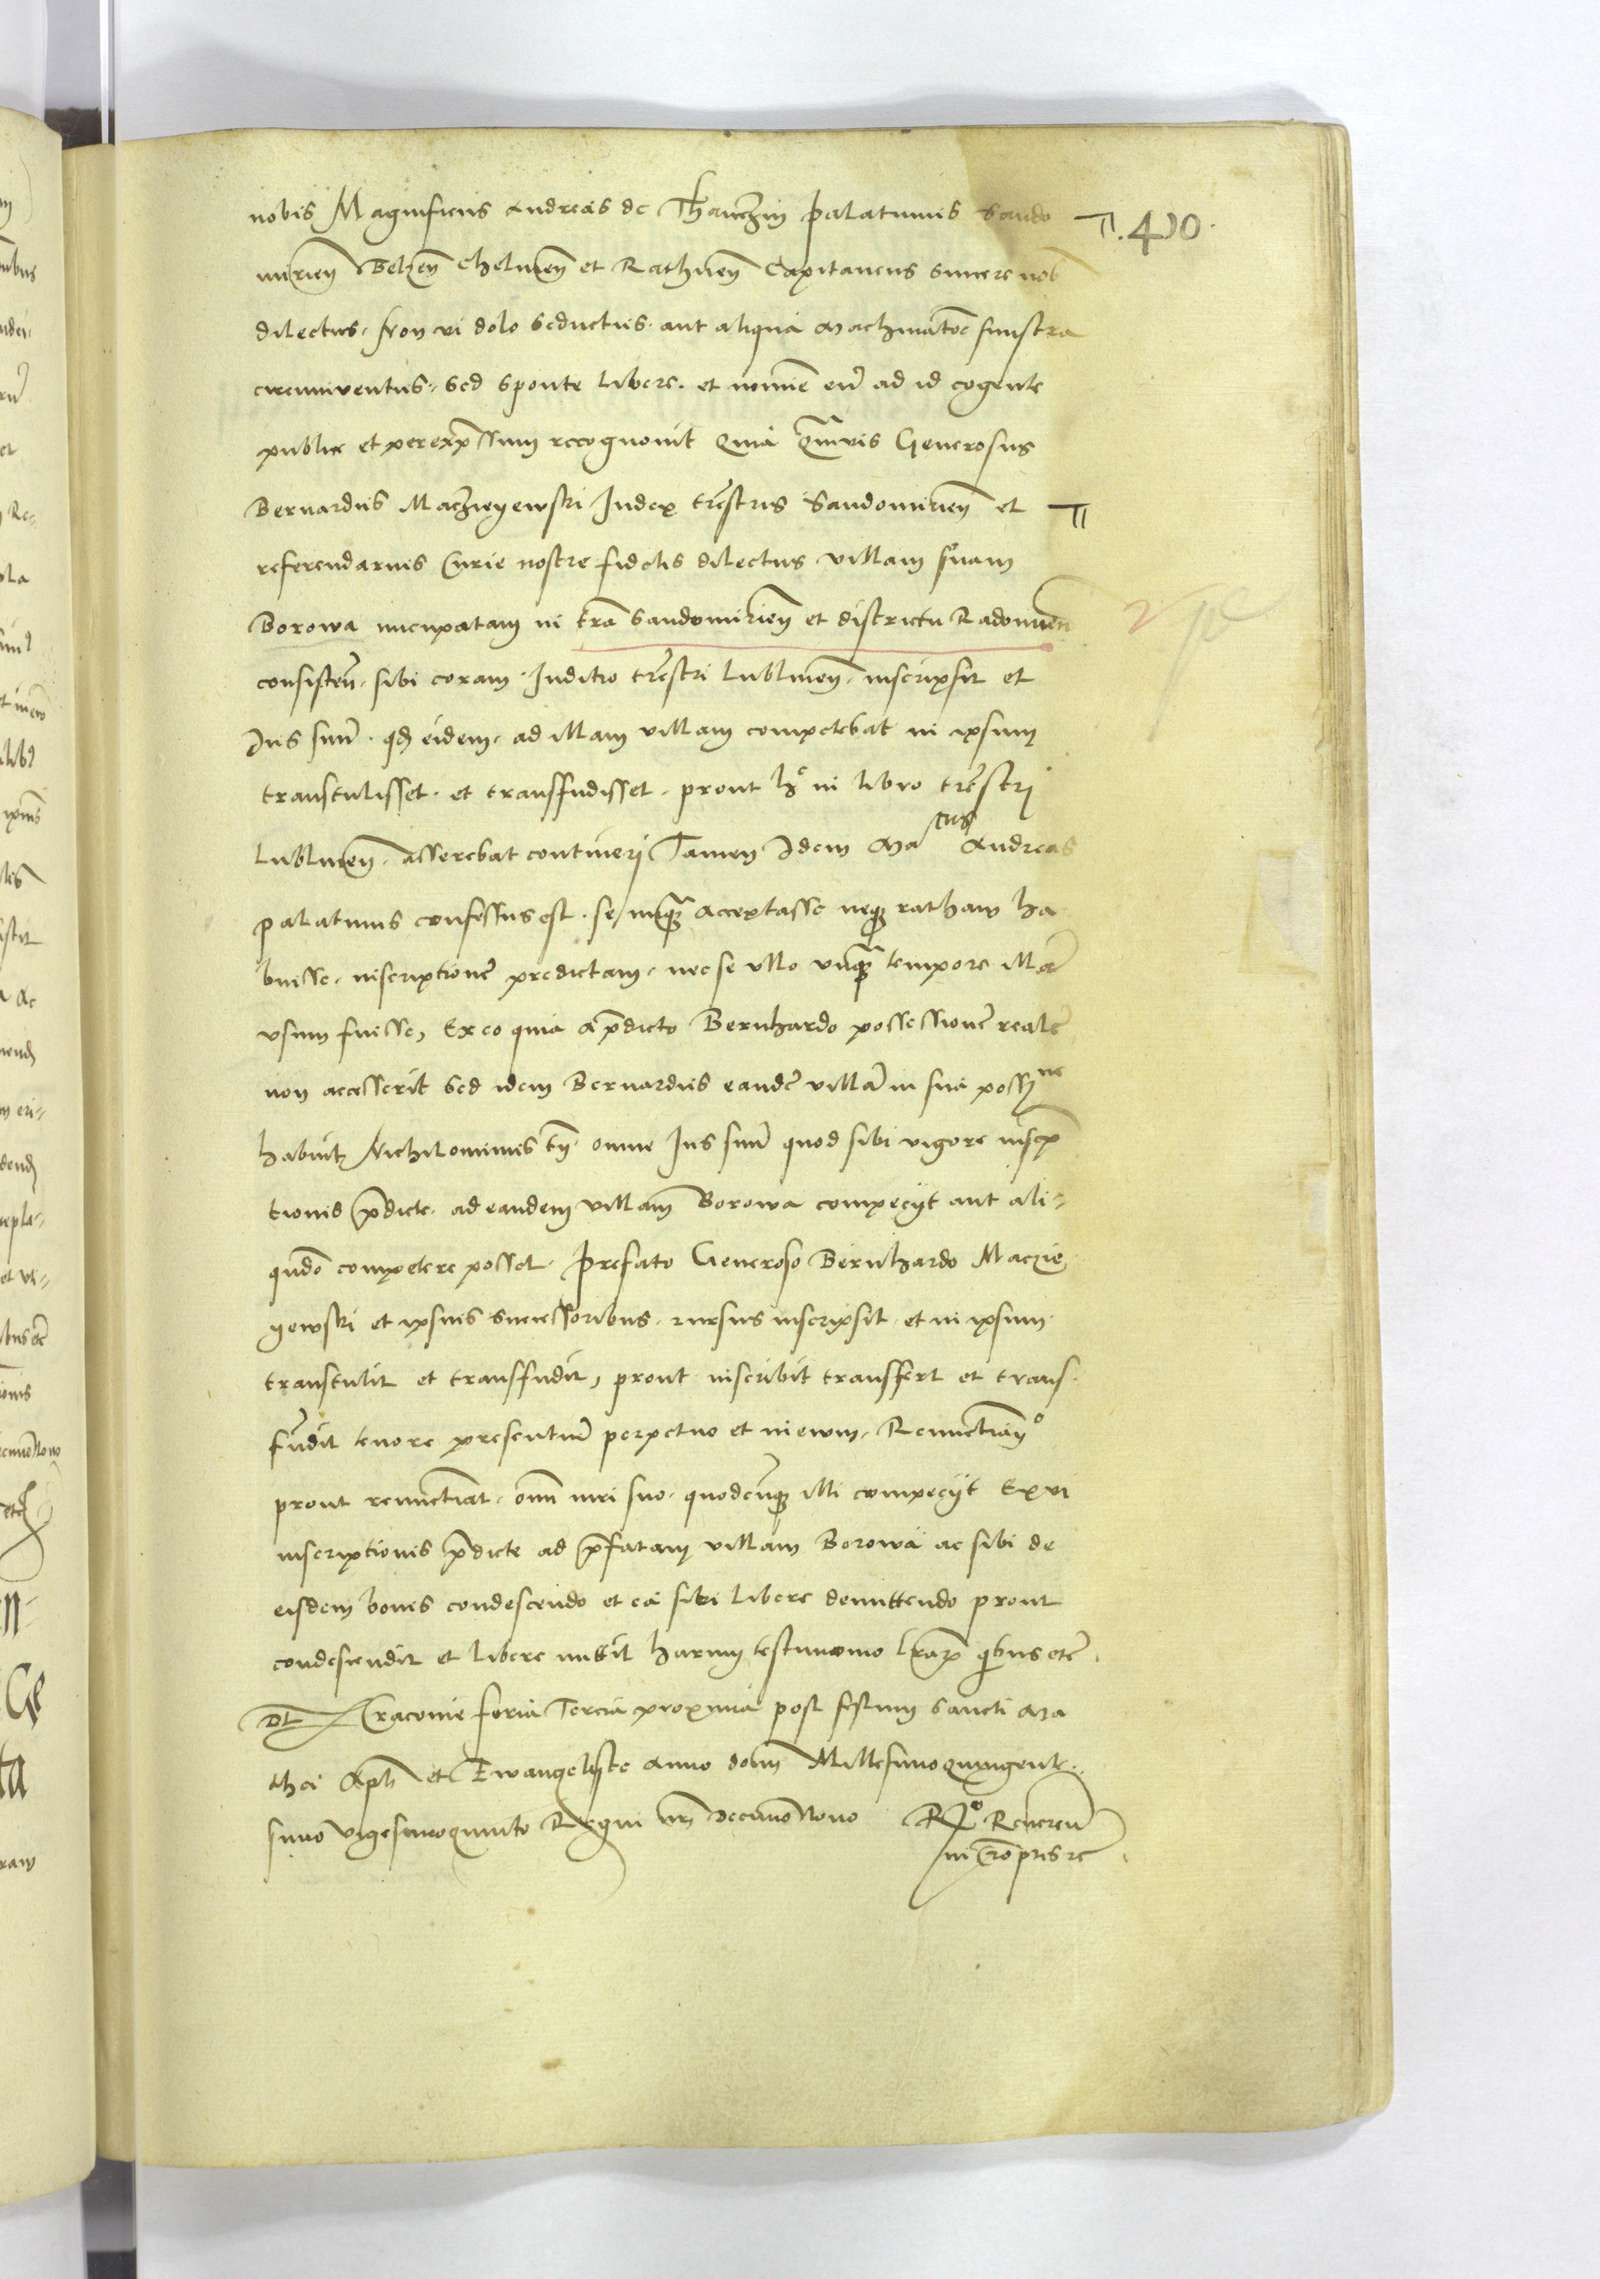 nobis Magnificus Andreas de Thanczin Palatinus Sando
mirien Belzen Chelmen et Rathnen Capitaneus sincere nob
dilectus. Non vi dolo seductus. aut aliqua machinatoe sinistra
circumventus. sed sponte libere. et nomine eum ad id cogente
publice et per expressum recognovit Quia Quavis Generosus
Bernardus Maczieyewski Iudex trestris Sandomirien et
referendarius Curie nostre fidelis dilectus villam suam
Borowa nuncupatam in tra Sandomirien et districtu Radomien
consisten. sibi coram Iuditio trestri Lublinen. inscripsit et
Ius suu. qd eidem. ad illam villam competebat in ipsum
transtulisset. et transfudisset. prout hec in libro trestri
Lublinen. asserebat contineri Tamen Idem Ma cus Andreas
palatinus confessus est. se nuqua acceptasse neq ratham ha
buisse. inscriptione predictam. nec se ullo unqua tempore illa
usum fuisse, Ex eo quia a pdicto Bernhardo possessione reale
non accesserit sed idem Bernardus eande villa in sua possne
habuit Nichilominus tn. omne Ius suu quod sibi vigore inscrip
tionis pdicte. ad eandem villam Borowa compecyt aut ali-
qudo competere posset. Prefato Generoso Bernhardo Maczie
yewski et ipsius successoribus. rursus inscripsit. et in ipsum
transtulit et transfudit, prout inscribit transfert et trans
fudit tenore presentium perpetuo et in ewm. Renuctiando
prout renunctiat. omi iuri suo. quodcunq illi compecyt Ex vi
inscriptionis pdicte ad pfatam villam Borowa ac sibi de
eisdem bonis condescendo et ea sibi libere demittendo prout
condescendit et libere mittit harum testimonio lrar qbus etc.
Dt Cracovie feria Tercia proxima post festum Sancti Ma
thei Apli et Ewangeliste Anno domi Millesimoquingente
simo vigesimoquinto Regni nri Decimonono Ro Reveren
in Cro ptis rc
.410.